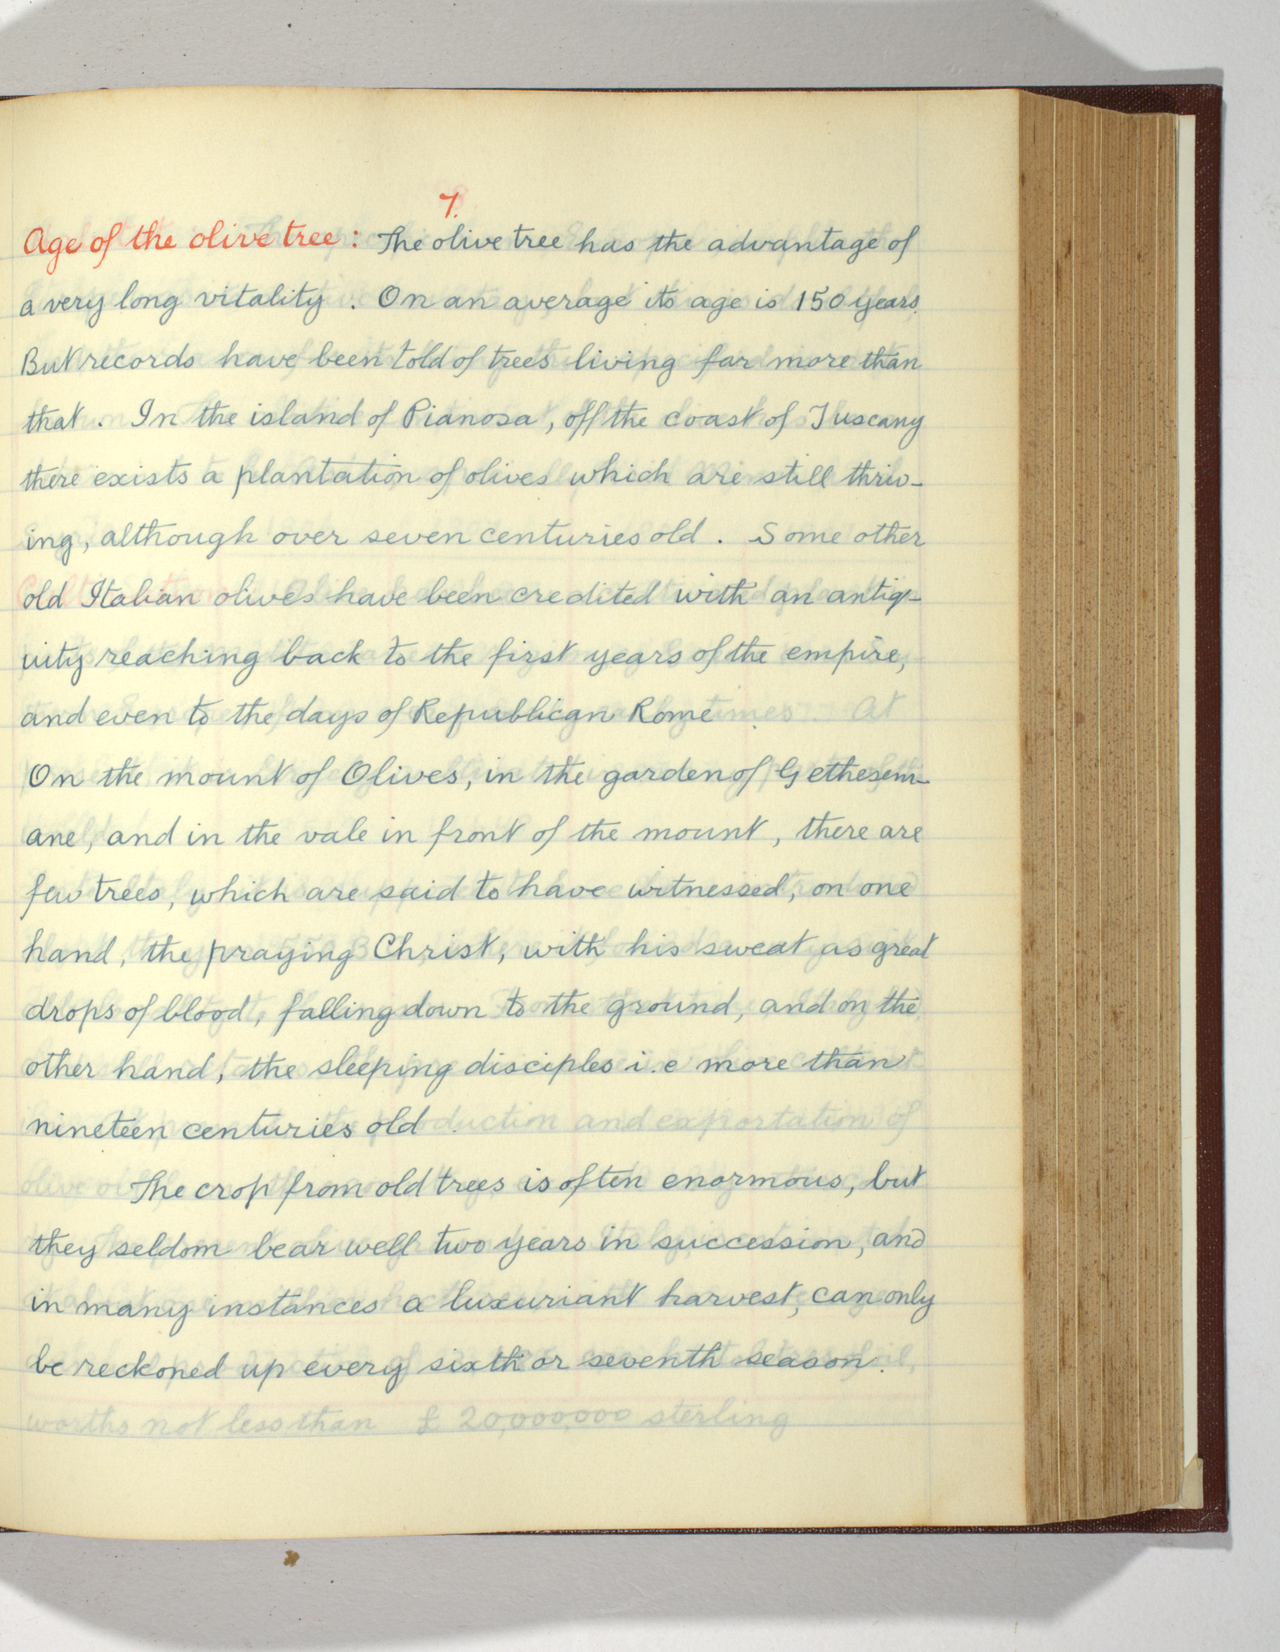 7.
Age of the olive tree : The olive tree has the advantage of
a very long vitality . On an average its age is 150 years.
But records have been told of trees living far more than
that . In the island of Pianosa , off the coast of Tuscany
there exists a plantation of olives which are still thriv-
ing , although over seven centuries old . Some other
old Italian olives have been credited with an antiq-
uity reaching back to the first years of the empire,
and even to the days of Republican Rome .
On the mount of Olives, in the garden of Gethesem-
ane, and in the vale in front of the mount, there are
few trees, which are said to have witnessed, on one
hand, the praying Christ, with his sweat as great
drops of blood, falling down to the ground, and on the
other hand, the sleeping disciples i.e more than
nineteen centuries old .
The crop from old trees is often enormous, but
they seldom bear well two years in succession, and
in many instances a luxuriant harvest, can only
be reckoned up every sixth or seventh season.
worths not less than £ 20,000,000 sterling